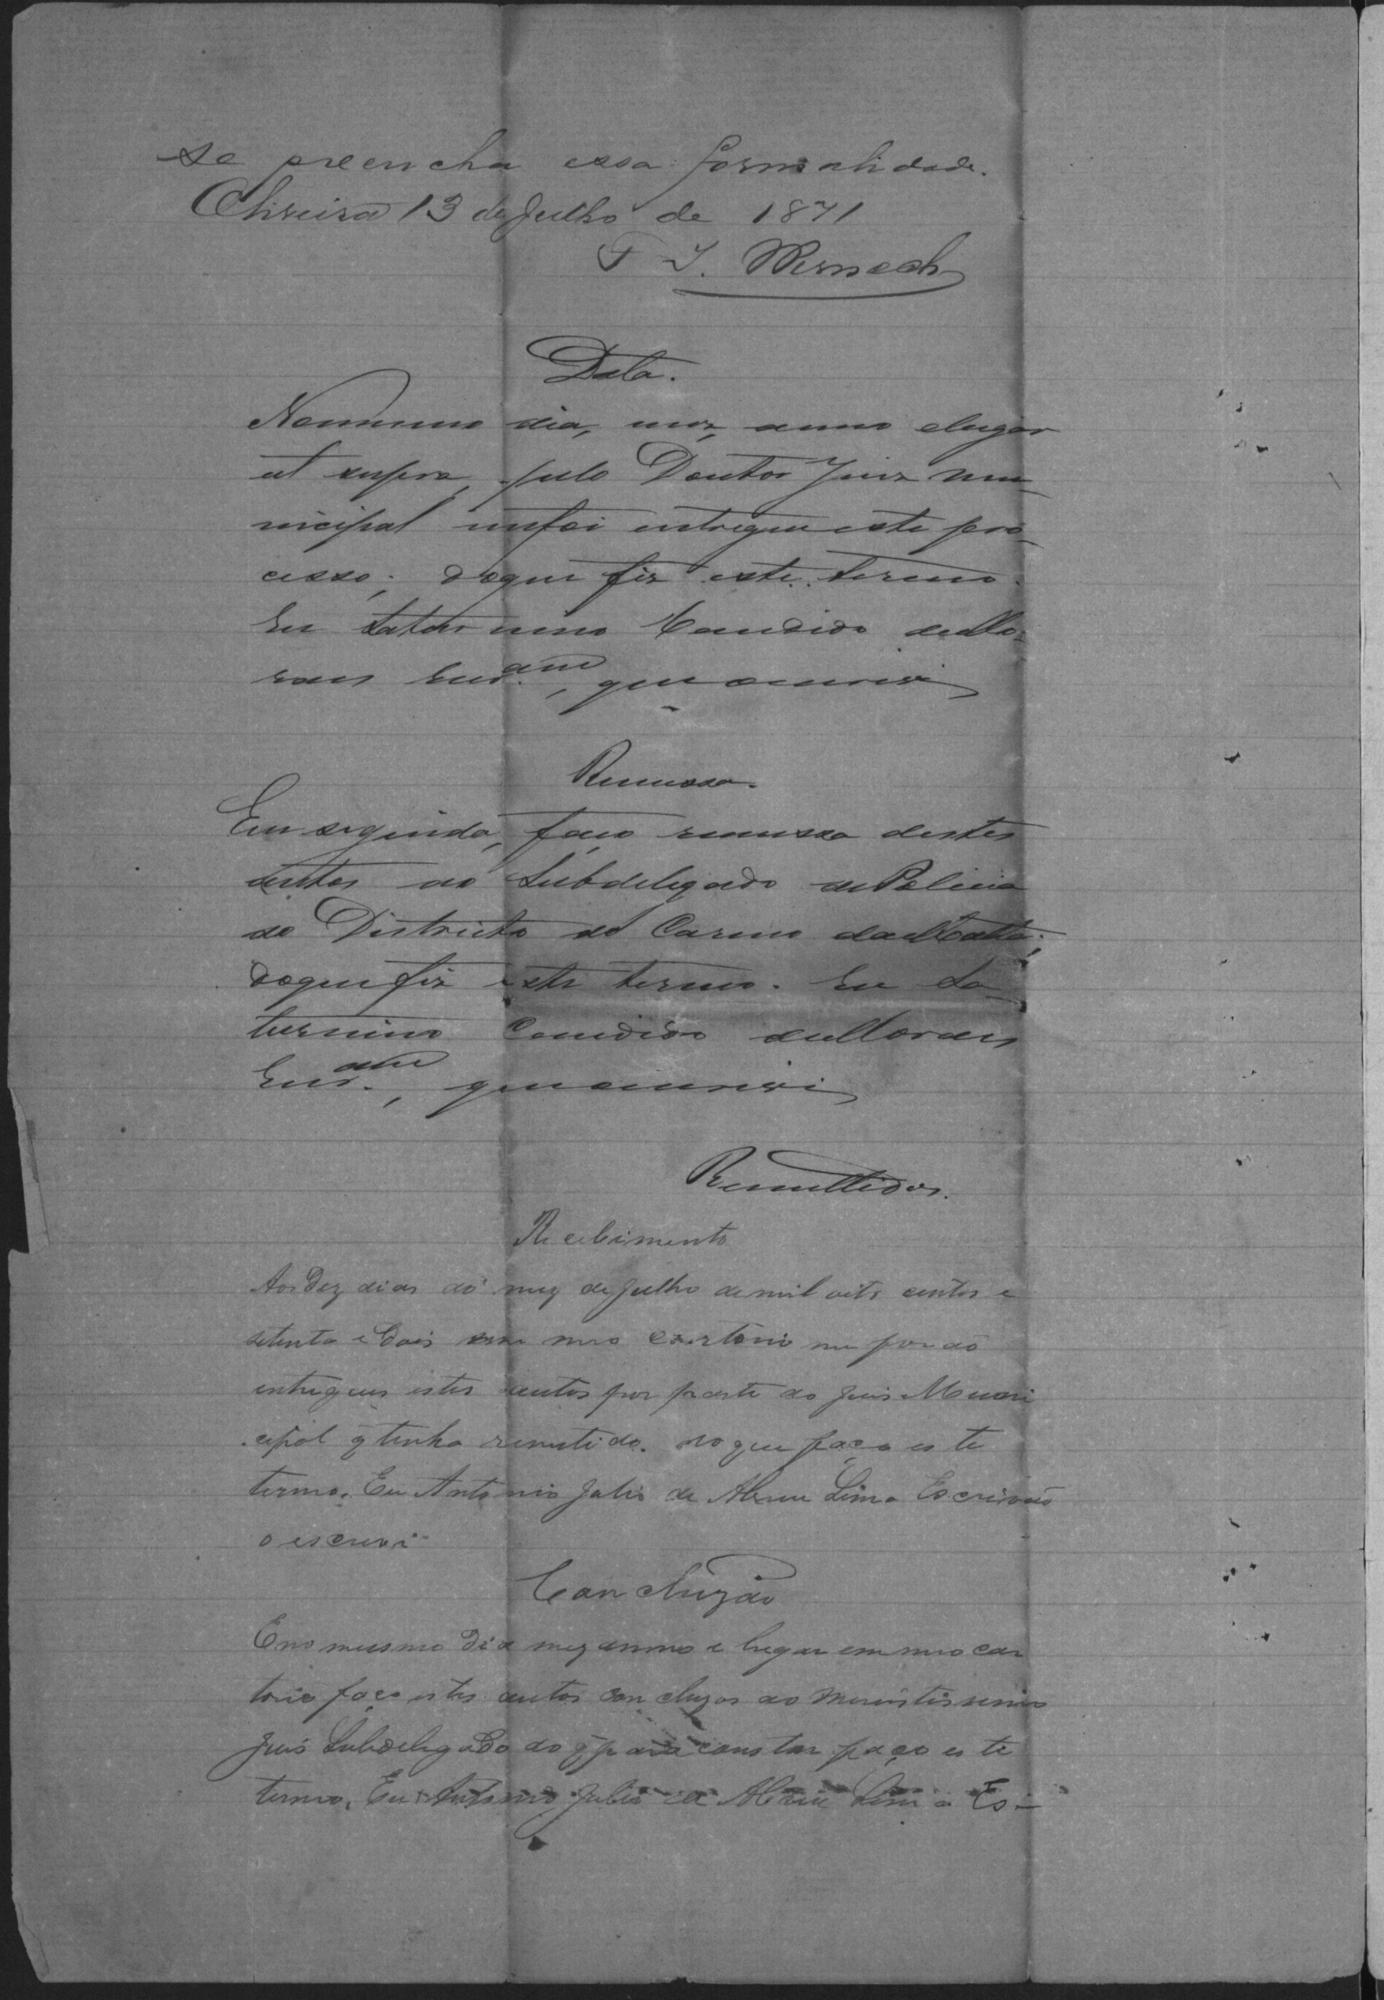 se preencha essa formalidade.
Oliveira 13 de Julho de 1871
F J. Werneck
Data.
No mesmo dia, mez, anno elugar
ut supra, pelo Doutor Juiz Mu-
nicipal mefoi entregue este pro-
cesso; doque fiz este termo.
Eu Saturnino Candido deMo-
raes Escr.am, queoescrevi
Remessa.
Em seguida, faço remessa destes
autos ao Subdelegado dePolicia
do Districto do Carmo daMatta;
doque fiz este termo. Eu Sa-
turnino Candido deMoraes
Escr.am, queoescrevi
Remettidos.
Recebimento
Aos Dez dias do mez de Julho de mil oito centos e
setenta e Dois em meo Cartorio me forão
entregues estes autos por parte do Juis Muni
cipal q tinha remetido. do que faço este
termo. Eu Antonio Julio de Abreu Lima Escrivão
o escrevi
Concluzão
E no mesmo Dia mez anno e lugar em meo car
torio faço estes autos concluzos ao meritissimo
Juis Subdelegado do q para constar faço este
termo. Eu Antonio Julio de Abreu Lima Es-